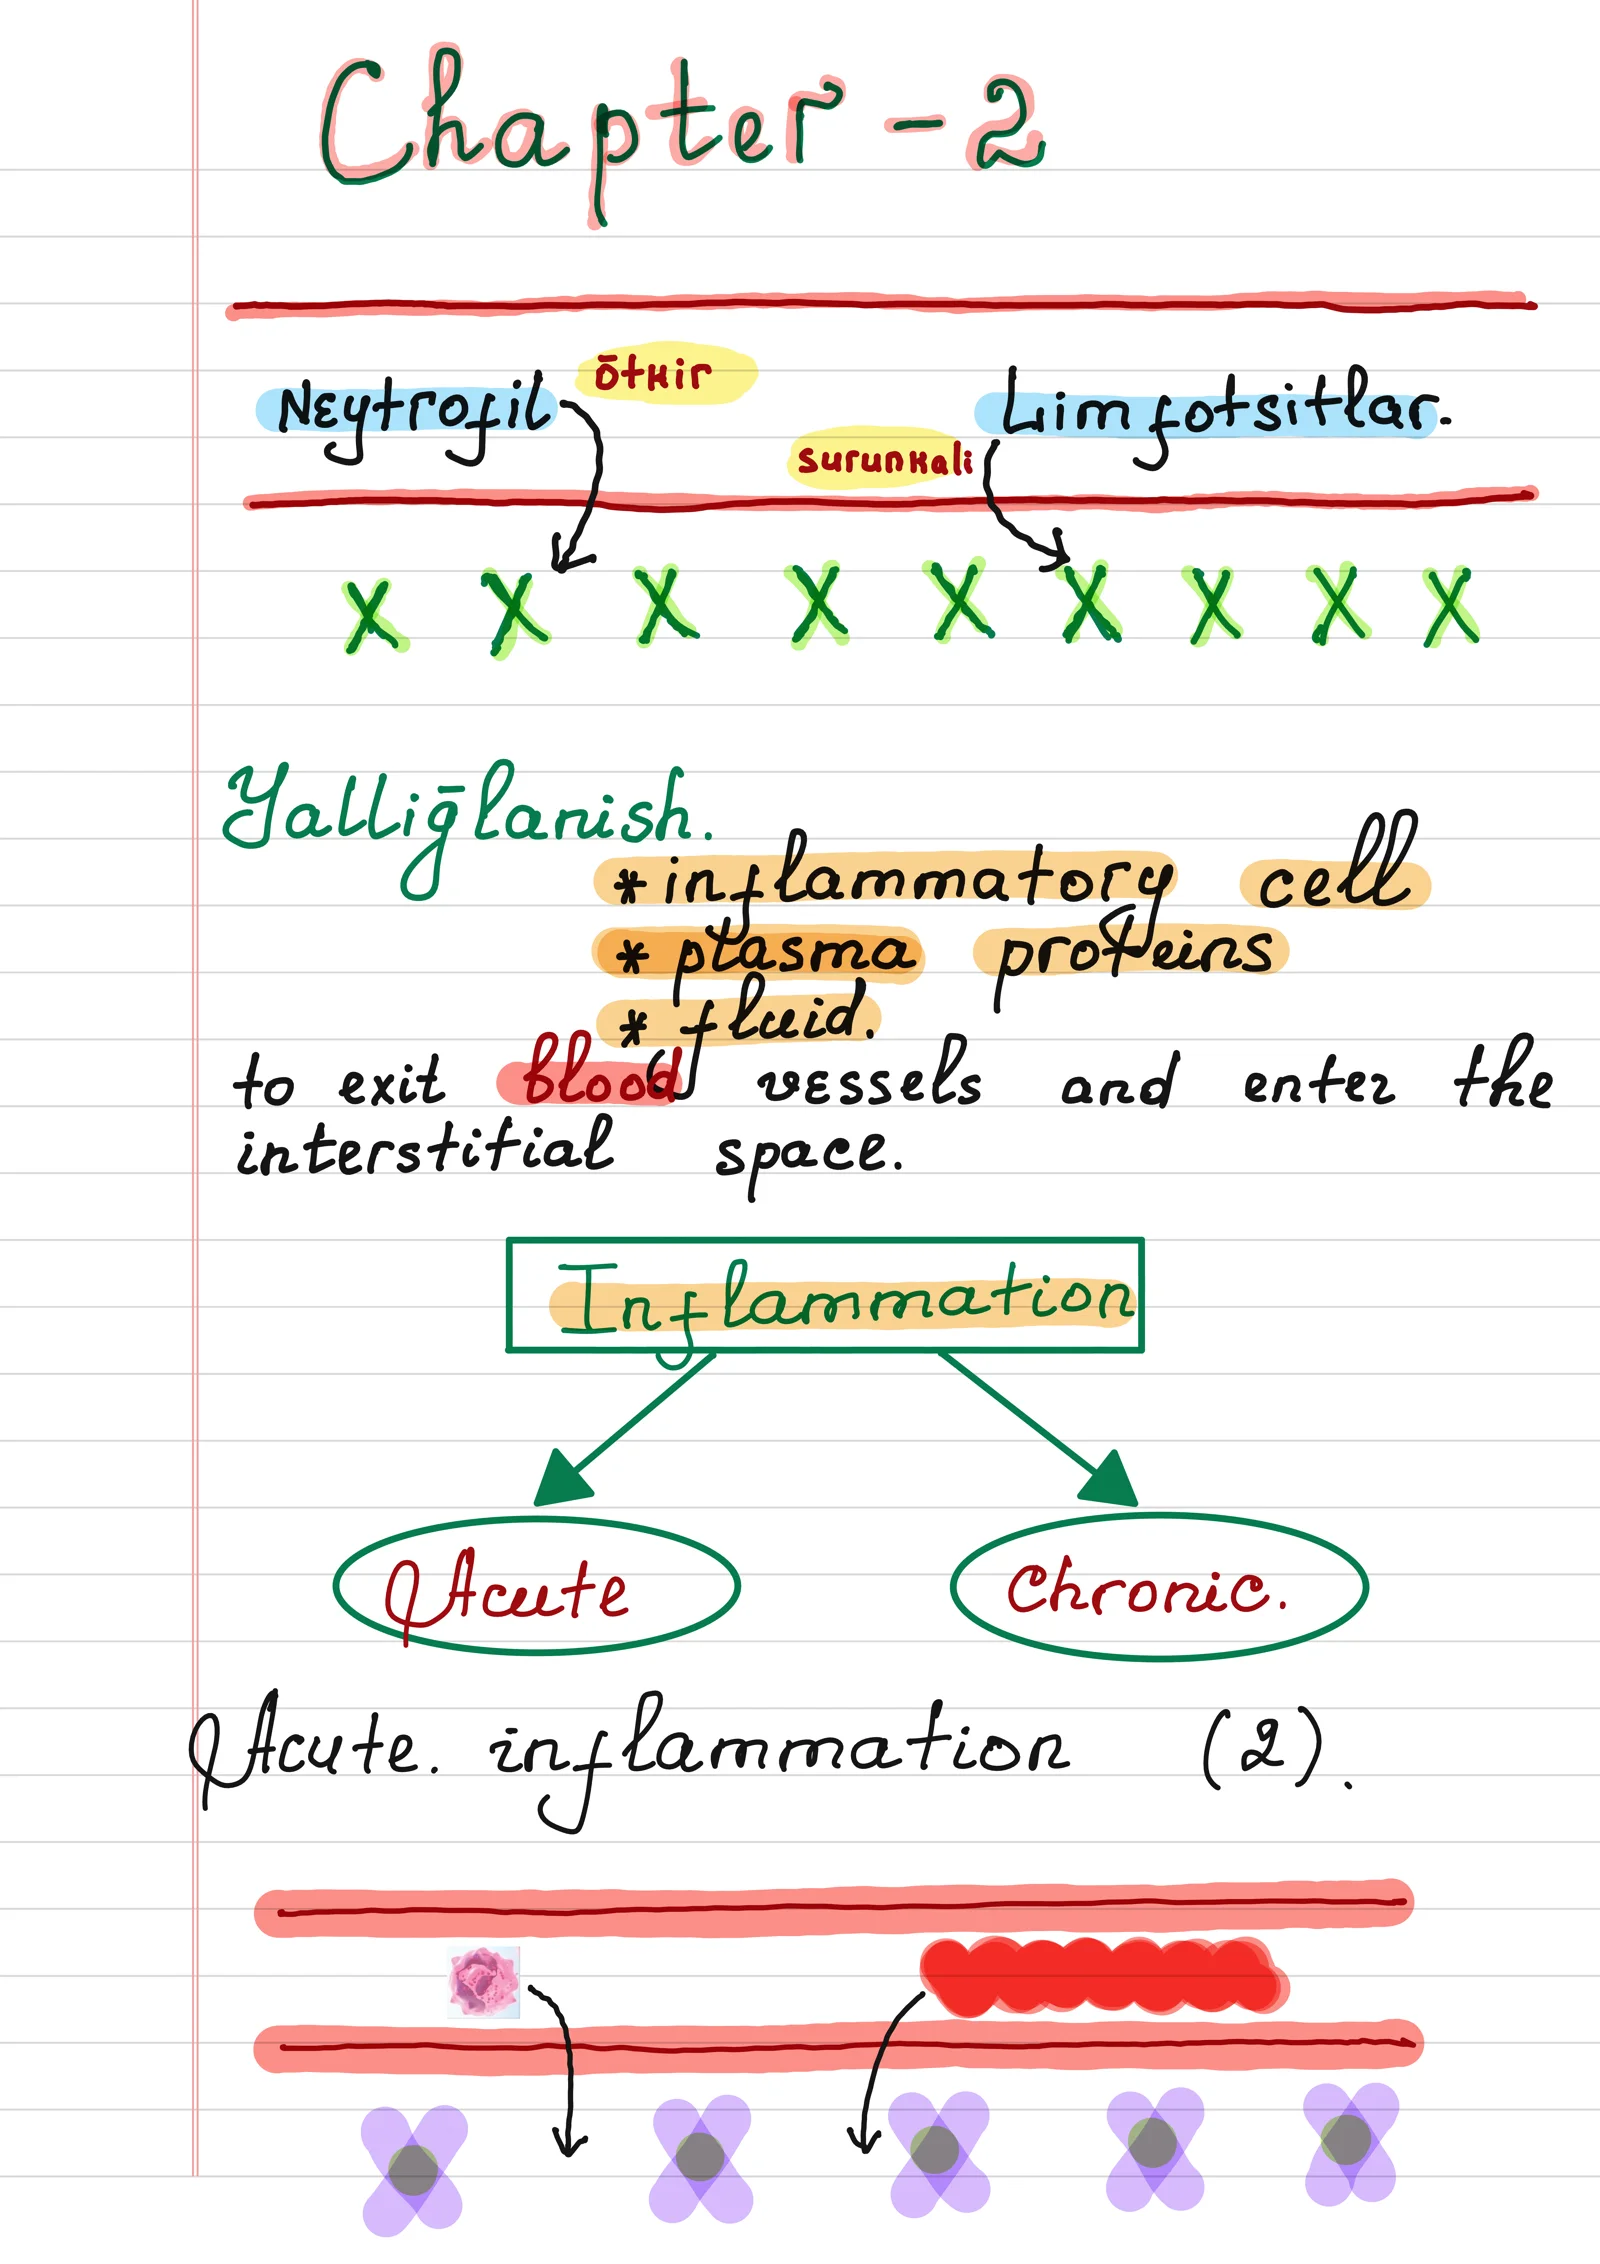 Chapter - 2
Neytrofil ōtkir Limfotsitlar.
surunkali
X X X X X X X X X
Yalliḡlanish.
* inflammatory cell
* plasma proteins
* fluid.
to exit blood vessels and enter the
interstitial space.
Inflammation
Acute Chronic.
Acute. inflammation (2).